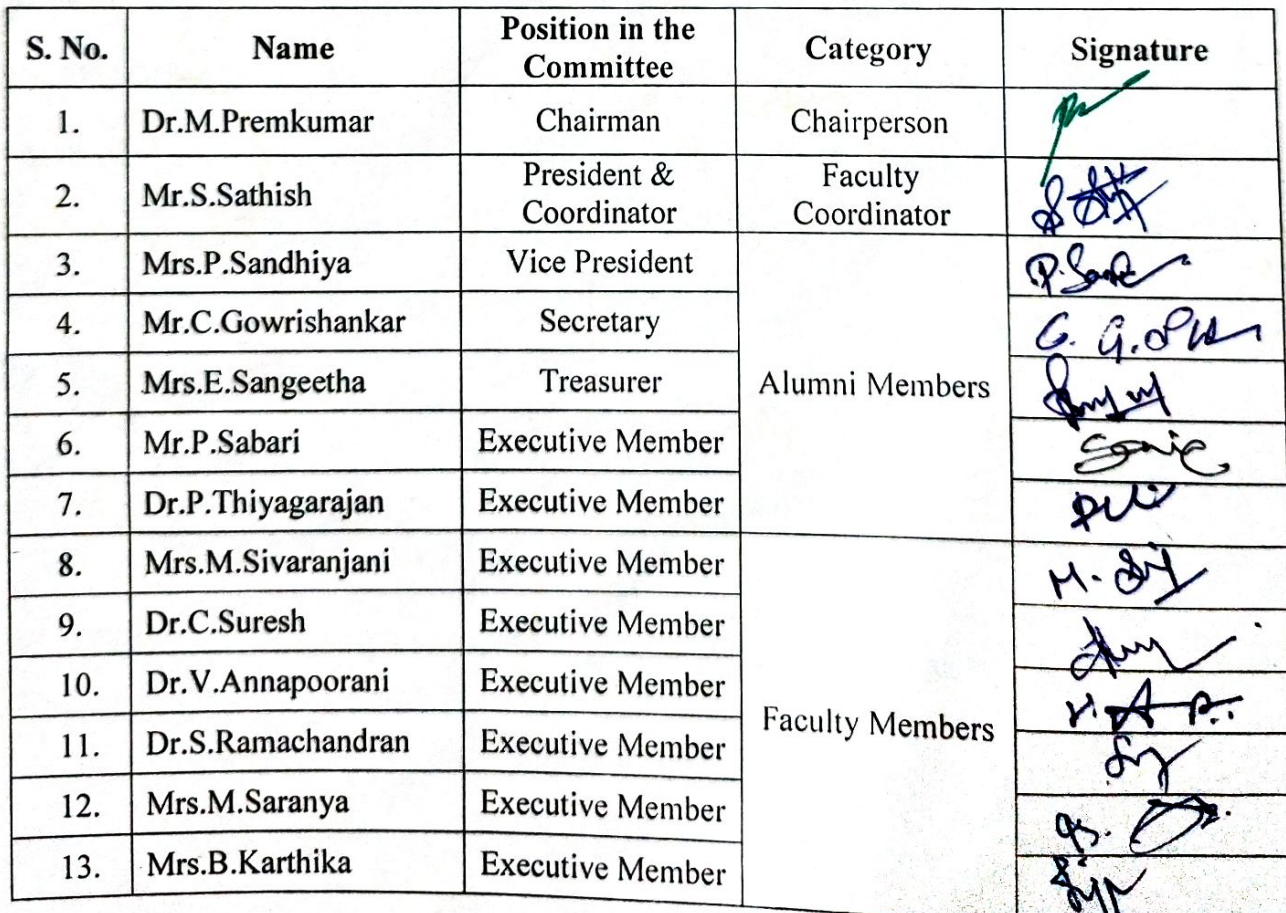 S. No. Name Position in the Committee Category Signature
1. Dr.M.Premkumar Chairman Chairperson
2. Mr.S.Sathish President & Coordinator Faculty Coordinator
3. Mrs.P.Sandhiya Vice President Alumni Members
4. Mr.C.Gowrishankar Secretary
5. Mrs.E.Sangeetha Treasurer
6. Mr.P.Sabari Executive Member
7. Dr.P.Thiyagarajan Executive Member
8. Mrs.M.Sivaranjani Executive Member Faculty Members
9. Dr.C.Suresh Executive Member
10. Dr.V.Annapoorani Executive Member
11. Dr.S.Ramachandran Executive Member
12. Mrs.M.Saranya Executive Member
13. Mrs.B.Karthika Executive Member